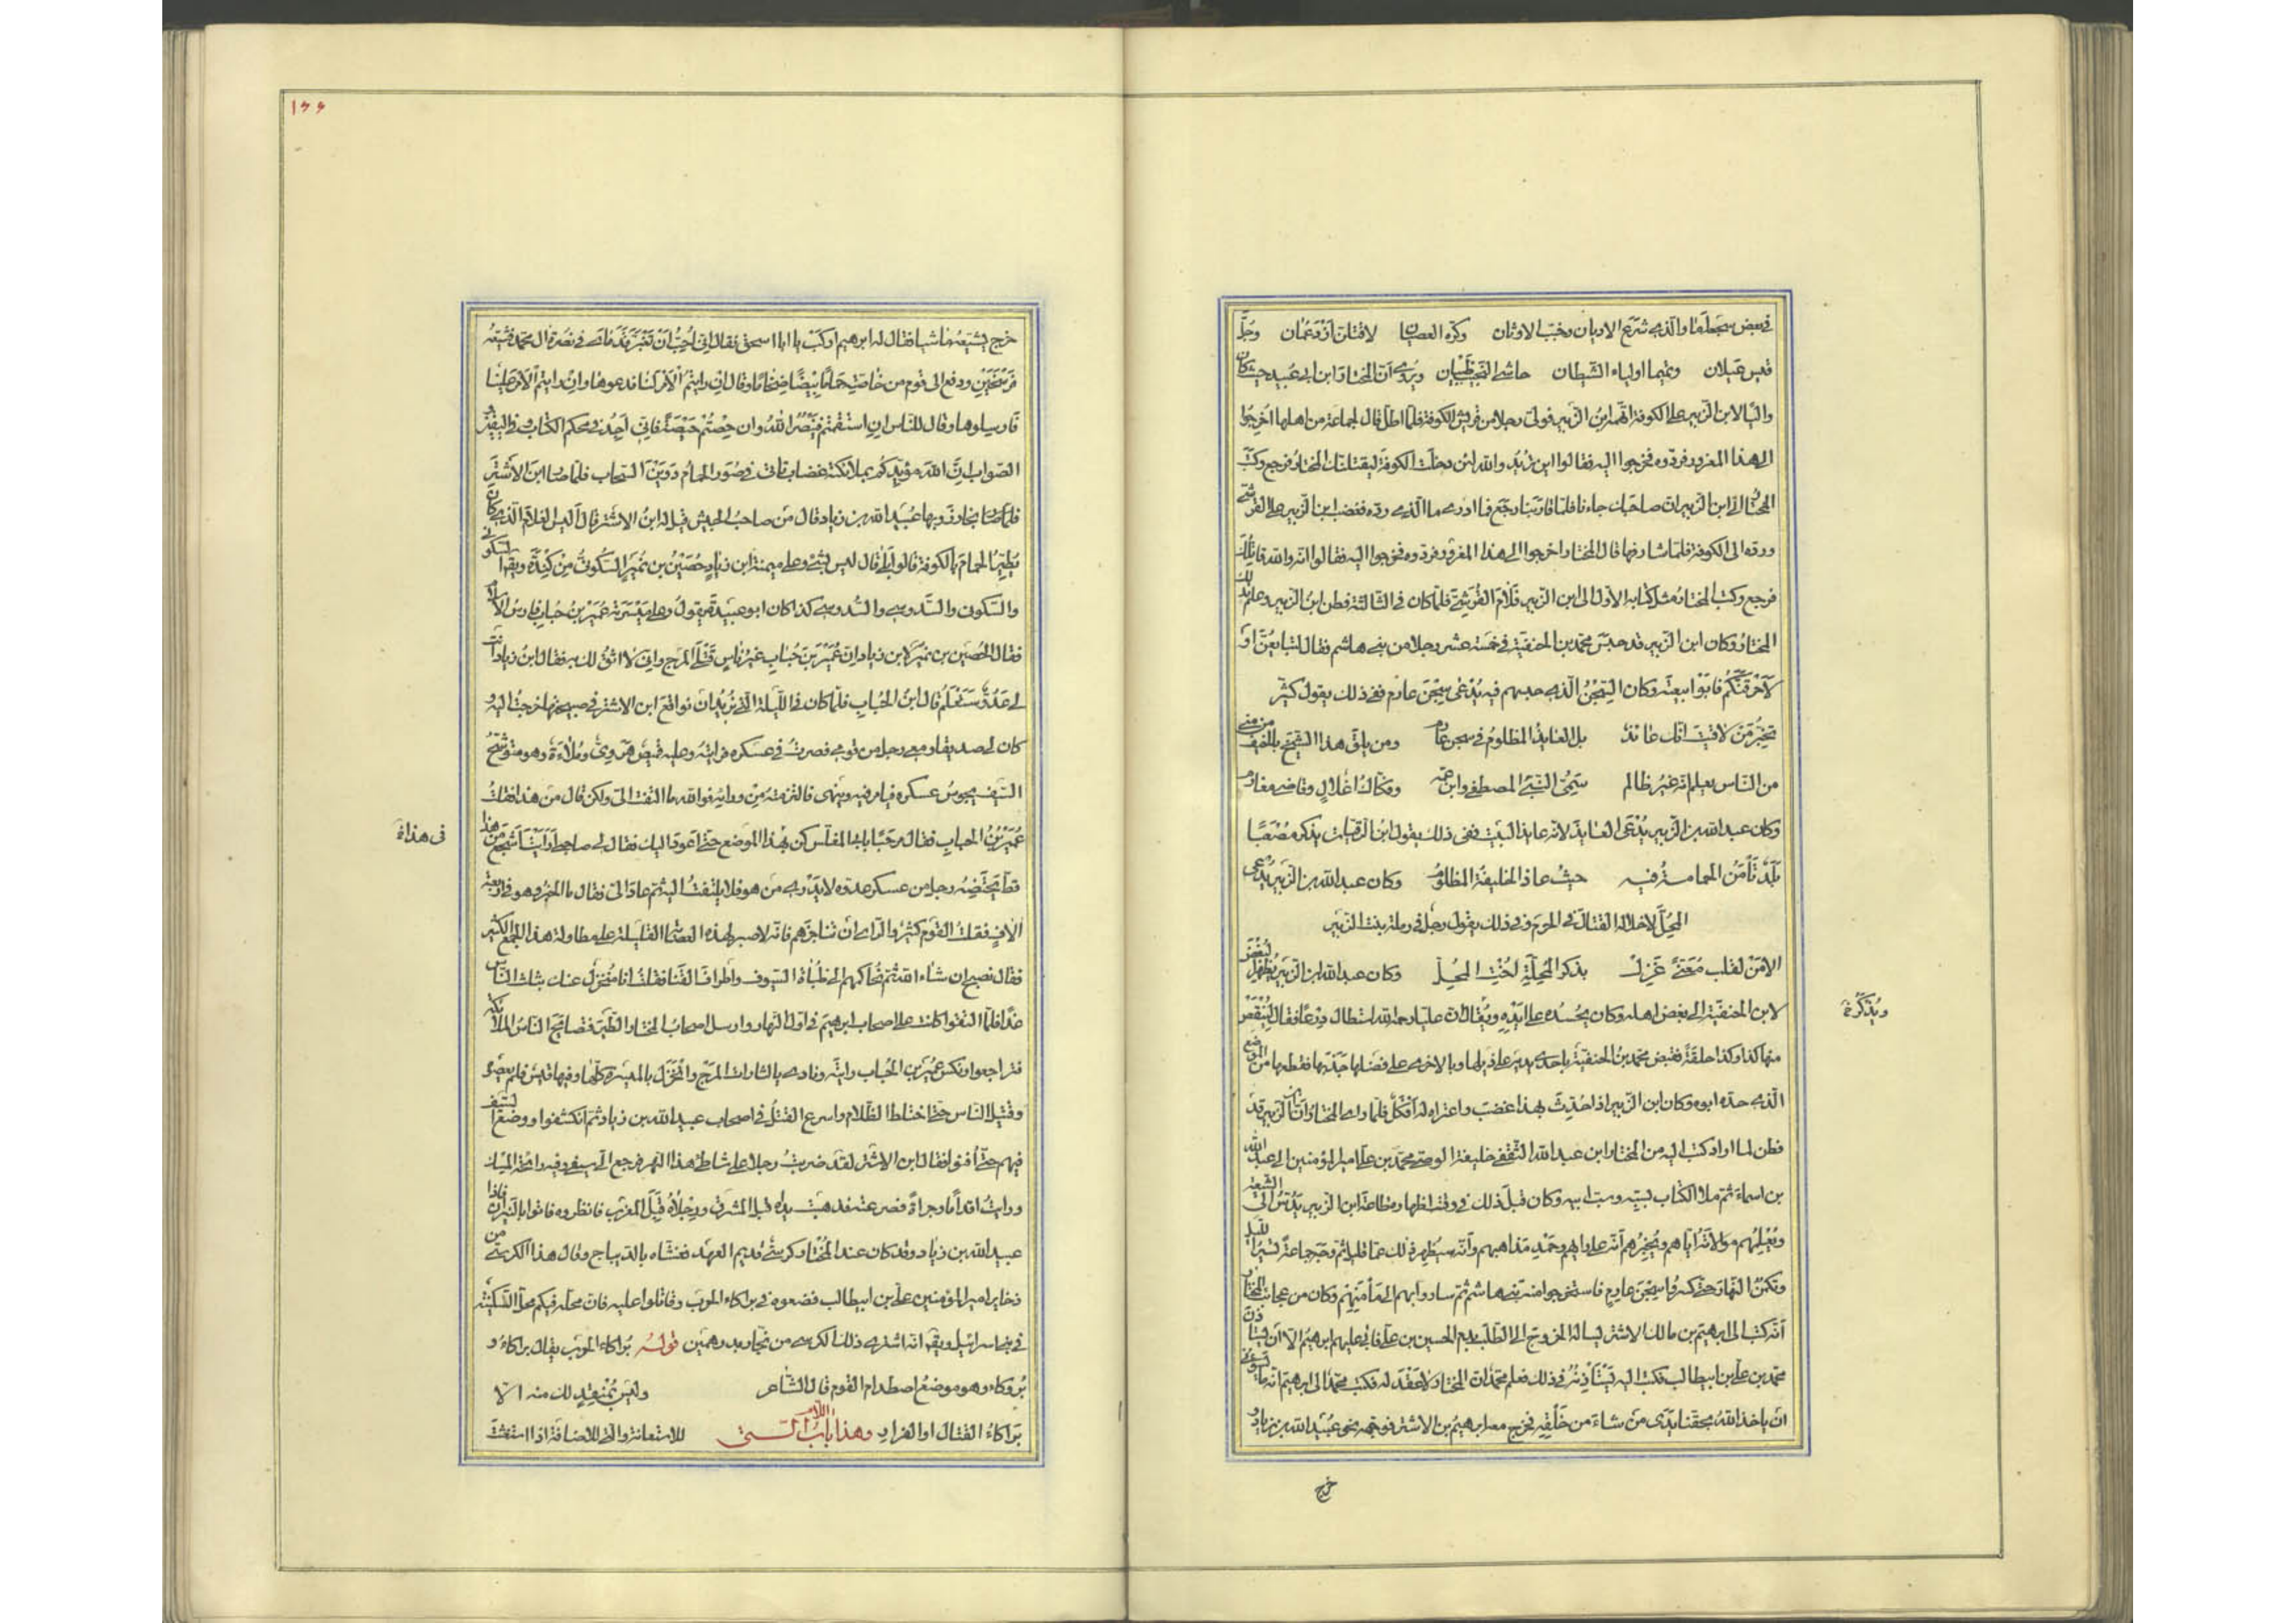 في بعض سجعه أما والذي شرع الاديان وجنب الاوثان وكره العصيان لاقتلن ازد عمان وجل
قيس عيلان وتميما اولياء الشيطان حاشى النجيب ظبيان ويروى أن المختار ابن ابى عبيد حيث كان
واليا لابن الزبير على الكوفة اتهمه ابن الزبير فولى رجلا من قريش الكوفة فلما اطل قال لجماعة من اهلها اخرجوا
الى هذا المغرور فردوه فخرجوا اليه فقالوا اين تريد والله لئن دخلت الكوفة ليقتلنك المختار فرجع وكتب
المختار الى ابن الزبير ان صاحبك جاءنا فلما قاربنا رجع فما ادرى ما الذى رده فغضب ابن الزبير على القرشى
ورده الى الكوفة فلما شارفها قال المختار اخرجوا الى هذا المغرور فردوه فخرجوا اليه فقالوا انه والله قاتلك
فرجع وكتب المختار بمثل كتابه الاول الى ابن الزبير فلام القرشى فلما كان فى الثالثة فطن ابن الزبير وعلم بذلك
المختار وكان ابن الزبير قد حبس محمد بن الحنفية فى خمسة عشر رجلا من بنى هاشم فقال لتبايعن او
لاحرقنكم فابوا بيعته وكان السجن الذى حبسهم فيه يدعى سجن عارم ففى ذلك يقول كثير
تخبر من لاقيت انك عائذ بل العائذ المظلوم فى سجن عارم ومن يلق هذا الشيخ بالخيف من منى
من الناس يعلم انه غير ظالم سمى النبى المصطفى وابن عمه وفكاك اغلال وقاضى مغارم
وكان عبد الله بن الزبير يدعى العائذ لانه عاذ بالبيت ففى ذلك يقول ابن الرقيات يذكر مصعبا
بلد تأمن الحمامة فيه حيث عاذ الخليفة المظلوم وكان عبد الله بن الزبير يدعى
المحل لاحلاله القتال فى الحرم وفى ذلك يقول رجل فى رملة بنت الزبير
الا من لقلب معنى غزل بذكر المحلة اخت المحل وكان عبد الله ابن الزبير يظهر البغض
لابن الحنفية الى بغض اهله وكان يحسده على ايده ويقال ان عليا رحمه الله استطال درعا فقال لينقص
ويذكر
منها كذا وكذا حلقة فقبض محمد بن الحنفية باحدى يديه على ذيلها وبالاخرى على فضلها ثم جذبها فقطعها من الموضع
الذى حده ابوه وكان ابن الزبير اذا حدث بهذا غضب واعتراه له افكل فلما راى المختار ان ابن الزبير قد
فطن لما اراد كتب اليه من المختار ابن عبد الله الثقفى خليفة الوصى محمد بن على امير المؤمنين الى عبد الله
بن اسماء ثم ملأ الكتاب بسبه وسب ابيه وكان قبل ذلك فى وقت اظهاره طاعة ابن الزبير يدس الى الشيعة
ويعلمهم موالاته اياهم ويخبرهم انه على رايهم وحمد مذاهبهم وانه سيظهر ذلك عما قليل ثم وجه جماعة تسير الليل
وتكمن النهار حتى كسروا سجن عارم فاستخرجوا منه بنى هاشم ثم ساروا بهم الى مأمنهم وكان من عجائب المختار
أنه كتب الى ابرهيم بن مالك الاشتر يساله الخروج الى الطلب بدم الحسين بن على فابى عليهم ابرهيم الا ان يستأذن
محمد بن على بن ابيطالب فكتب اليه يستأذنه فى ذلك فعلم محمد ان المختار لا عقد له فكتب محمد الى ابرهيم انه ما يسوءنى
ان ياخذ الله بحقنا على يدى من شاء من خلقه فخرج معه ابرهيم بن الاشتر فوجه نحو عبيد الله بن زياد و
خرج
١٦٦
خرج يشيعه ماشيا فقال له ابرهيم اركب يا ابا اسحق فقال انى احب ان تغبر قدماى فى نصرة ال محمد فشيعه
فرسخين ودفع الى قوم من خاصته حماما بيضا ضخاما وقال ان رايتم الامر لنا فدعوها وان رايتم الامر علينا
فارسلوها وقال للناس ان استقمتم فبنصر الله وان حصتم حيصة فانى اجد فى محكم الكتاب وفى اليقين
الصواب ان الله مؤيدكم بملائكة غضاب تاتى فى صور الحمام دوين السحاب فلما صار ابن الاشتر
بخازر وبها عبيد الله بن زياد قال من صاحب الجيش قيل له ابن الاشتر قال اليس الغلام الذى كان
يطير الحمام بالكوفة قالوا بلى قال ليس بشئ وعلى ميمنة ابن زياد حصين بن نمير السكونى من كندة ويقال السكونى
والسكونى والسدوسى والسدوسى كذا كان ابو عبيدة يقول وعلى ميسرته عمير بن حباب فارس الاسلام
فقال الحصين بن نمير لابن زياد ان عمير بن حباب غير ناس قتلى المرج وانى لا اثق لك به فقال ابن زياد انت
لى عدو ستعلم قال ابن الحباب فلما كان فى الليلة التى نريد ان نواقع ابن الاشتر فى صبيحتها خرجت اليه و
كان لى صديقا ومعى رجل من قومى فصرت فى عسكره فرايته وعليه قميص هروى وملاءة وهو متوشح
السيف يجوس عسكره فيامر فيه وينهى فالتزمته من ورائه فوالله ما التفت الى ولكن قال من هذا فقلت
عمير بن الحباب فقال مرحبا بابى المغلس كن بهذا الموضع حتى اعود اليك فقال لى صاحبى ارايت اشجع من هذا
فى هذا
قط يحتضنه رجل من عسكر عدوه لا يدرى من هو فلا يلتفت اليه ثم عاد الى فقال ما الخبر وهو فى اربعة
آلاف فقلت القوم كثير والراى ان تناجزهم فانه لا صبر لهذه العصابة القليلة على مطاولة هذا الجمع الكثير
فقال نصبح ان شاء الله ثم نحاكمهم الى ظباة السيوف واطراف القنا فقلت انا منخزل عنك بثلث الناس
غدا فلما التقوا كانت على اصحاب ابرهيم فى اول النهار وارسل اصحاب المختار الطير فتصايح الناس الملائكة
فتراجعوا ونكس عمير بن الحباب رايته ونادى يالثارات المرج وانخزل بالميسرة كلها وفيها قيس فلم يعصوه
واقتتل الناس حتى اختلط الظلام واسرع القتل فى اصحاب عبيد الله بن زياد ثم انكشفوا ووضع السيف
فيهم حتى أفنوا فقال ابن الاشتر لقد ضربت رجلا على شاطئ هذا النهر فرجع الى سيفى وفيه رائحة المسك
ورايت اقداما وجراة فصرعته فذهبت يداه قبل المشرق ورجلاه قبل المغرب فانظروه فاتوا بالنيران فاذا
عبيد الله بن زياد وقد كان عند المختار كرسى قديم العهد فغشاه بالديباج وقال هذا الكرسى من
ذخاير امير المؤمنين على بن ابيطالب فضعوه فى براكاء الحرب وقاتلوا عليه فان محله فيكم محل السكينة
فى بنى اسرائيل ويقال انه اشترى ذلك الكرسى من نجار بدرهمين قوله براكاء الحرب يقال براكاء و
بروكاء وهو موضع اصطدام القوم قال الشاعر وليس بمنقذ لك منه الا
براكاء القتال او الفرار وهذا باب اللام التى للاستغاثة والتى للاضافة اذا استغثت